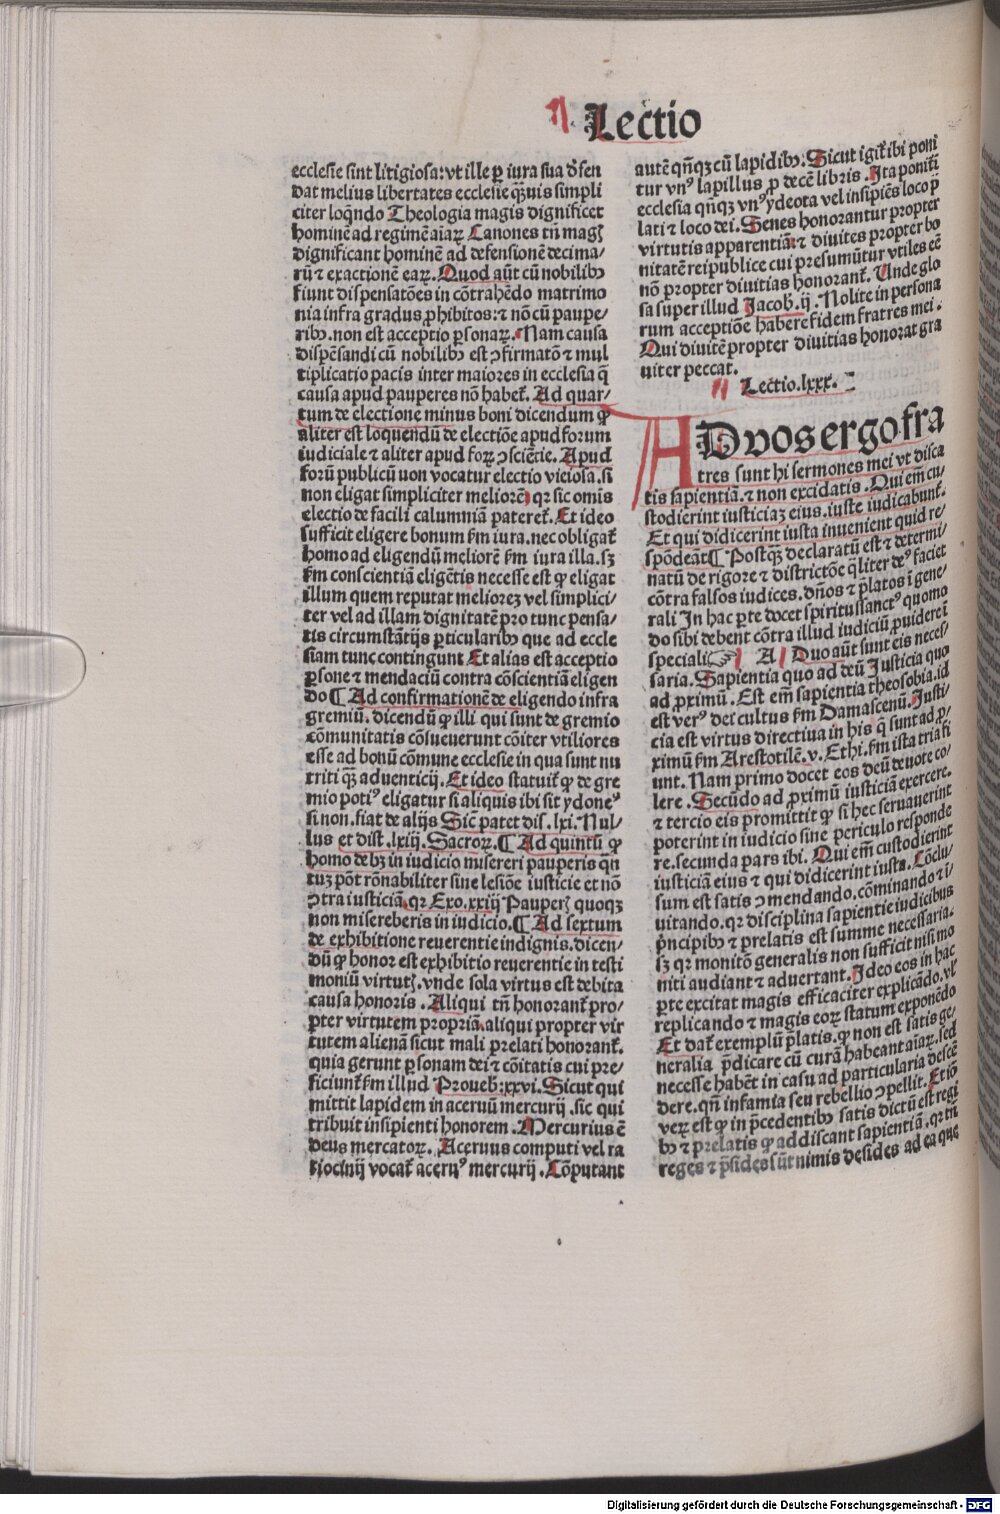 Lectio
ecclesie sint litigiosa: vt ille ꝑ iura sua d̄fen
dat melius libertates ecclesie qͣꝫuis simpli
citer loqn̄do Theologia magis dignificet
hominē ad regimē aīaꝝ Canones tn̄ magꝭ
dignificant hominē ad defensionē decima/
rū ⁊ exactionē eaꝝ. Quod aūt cū nobilibꝰ
fiunt dispensatōes in cōtrahēdo matrimo
nia infra gradus ꝓhibitos: ⁊ nō cū paupe/
ribꝰ. non est acceptio ꝑsonaꝝ. Nam causa
dispēsandi cū nobilibꝰ est ↄfirmatō ⁊ mul
tiplicatio pacis inter maiores in ecclesia q̄
causa apud pauperes nō habet᷑. Ad quar/
tum de electione minus boni dicendum ꝙ
aliter est loquendū de electiōe apud forum
iudiciale ⁊ aliter apud foꝝ ↄsciētie. Apud
forū publicū non vocatur electio viciosa. si
non eligat simpliciter meliorē qꝛ sic omīs
electio de facili calumniā pateret᷑. Et ideo
sufficit eligere bonum ẜm iura. nec obligat᷑
homo ad eligendū meliorē ẜm iura illa. sꝫ
ẜm conscientiā eligētis necesse est ꝙ eligat
illum quem reputat melioreꝫ vel simplici/
ter vel ad illam dignitatē pro tunc pensa/
tis circumstātijs ꝑticularibꝰ que ad eccle
siam tunc contingunt Et alias est acceptio
ꝑsone ⁊ mendaciū contra cōscientiā eligen
do ¶ Ad confirmationē de eligendo infra
gremiū. dicendū ꝙ illi qui sunt de gremio
cōmunitatis cōsueuerunt cōiter vtiliores
esse ad bonū cōmune ecclesie in qua sunt nu
triti qͣꝫ aduenticij. Et ideo statuit᷑ ꝙ de gre
mio potiꝰ eligatur si aliquis ibi sit ydoneꝰ
si non. fiat de alijs Sic patet dis. lxi. Nul/
lus et dist. lxiij. Sacroꝝ. ¶ Ad quintū ꝙ
homo debꝫ in iudicio misereri pauperis qn̄
tuꝫ pōt rōnabiliter sine lesiōe iusticie et nō
ↄtra iusticiā. qꝛ Exo. xxiij Pauperꝭ quoqꝫ
non misereberis in iudicio. ¶ Ad sextum
de exhibitione reuerentie indignis. dicen/
dū ꝙ honor est exhibitio reuerentie in testi
moniū virtutꝭ. vnde sola virtus est debita
causa honoris. Aliqui tn̄ honorant᷑ pro/
pter virtutem propriā aliqui propter vir
tutem alienā sicut mali prelati honorant᷑.
quia gerunt ꝑsonam dei ⁊ cōitatis cui pre/
ficiunt᷑ ẜm illud Proueb: xxvi. Sicut qui
mittit lapidem in aceruū mercurij. sic qui
tribuit insipienti honorem. Mercurius ē
deus mercatoꝝ. Aceruus computi vel ra
tiocinij vocat᷑ aceruꝰ mercurij. Cōputant
autē qn̄qꝫ cū lapidibꝰ. Sicut igit᷑ ibi poni
tur vnꝰ lapillus ꝓ decē libris. Ita ponit᷑ ī
ecclesia qn̄qꝫ vnꝰ ydeota vel insipiēs loco p̄
lati ⁊ loco dei. Senes honorantur propter
virtutis apparentiā: ⁊ diuites propter bo
nitatē reipublice cui presumūtur vtiles eē
nō propter diuitias honorant᷑. Unde glo
sa super illud Jacob. ij. Nolite in persona
rum acceptiōe habere fidem fratres mei.
Qui diuitē propter diuitias honorat gra
uiter peccat.
Lectio. lxxx.
AD vos ergo fra
tres sunt hi sermones mei vt disca
tis sapientiā. ⁊ non excidatis. Qui em̄ cu/
stodierint iusticiaꝫ eius. iuste iudicabunt᷑.
Et qui didicerint iusta inuenient quid re/
spōdeāt ¶ Postqͣꝫ declaratū est ⁊ determi/
natū de rigore ⁊ districtōe qͣliter deꝰ faciet
cōtra falsos iudices. dn̄os ⁊ p̄latos ī gene/
rali In hac ꝑte docet spiritussanctꝰ quomo
do sibi debent cōtra illud iudiciū ꝓuidere ī
speciali ☞ A Duo aūt sunt eis neces/
saria. Sapientia quo ad deū Justicia quo
ad ꝓximū. Est em̄ sapientia theosobia. id
est verꝰ dei cultus ẜm Damascenū. Justi/
cia est virtus directiua in his q̄ sunt ad ꝓ/
ximū ẜm Arestotilē. v. Ethi. ẜm ista tria fi
unt. Nam primo docet eos deū deuote co/
lere. Secūdo ad ꝓximū iusticiā exercere.
⁊ tercio eis promittit ꝙ si hec seruauerint
poterint in iudicio sine periculo responde
re. secunda pars ibi. Qui em̄ custodierint
iusticiā eius ⁊ qui didicerint iusta. Cōclu/
sum est satis ↄmendando. cōminando ⁊ ī/
uitando. qꝛ disciplina sapientie iudicibus
p̄ncipibꝰ ⁊ prelatis est summe necessaria.
sꝫ qꝛ monitō generalis non sufficit nisi mo
niti audiant ⁊ aduertant. Ideo eos in hac
ꝑte excitat magis efficaciter explicādo. vꝉ
replicando ⁊ magis eoꝝ statum exponēdo
Et dat᷑ exemplū p̄latis. ꝙ non est satis ge/
neralia p̄dicare cū curā habeant aīaꝝ. sed
necesse habēt in casu ad particularia descē
dere. qn̄ infamia seu rebellio ↄpellit. Et iō
veꝝ est ꝙ in p̄cedentibꝰ satis dictū est regi
bꝰ ⁊ p̄relatis ꝙ addiscant sapientiā. qꝛ tn̄
reges ⁊ p̄sides sūt nimis desides ad ea que
Digitalisierung gefördert durch die Deutsche Forschungsgemeinschaft - DFG